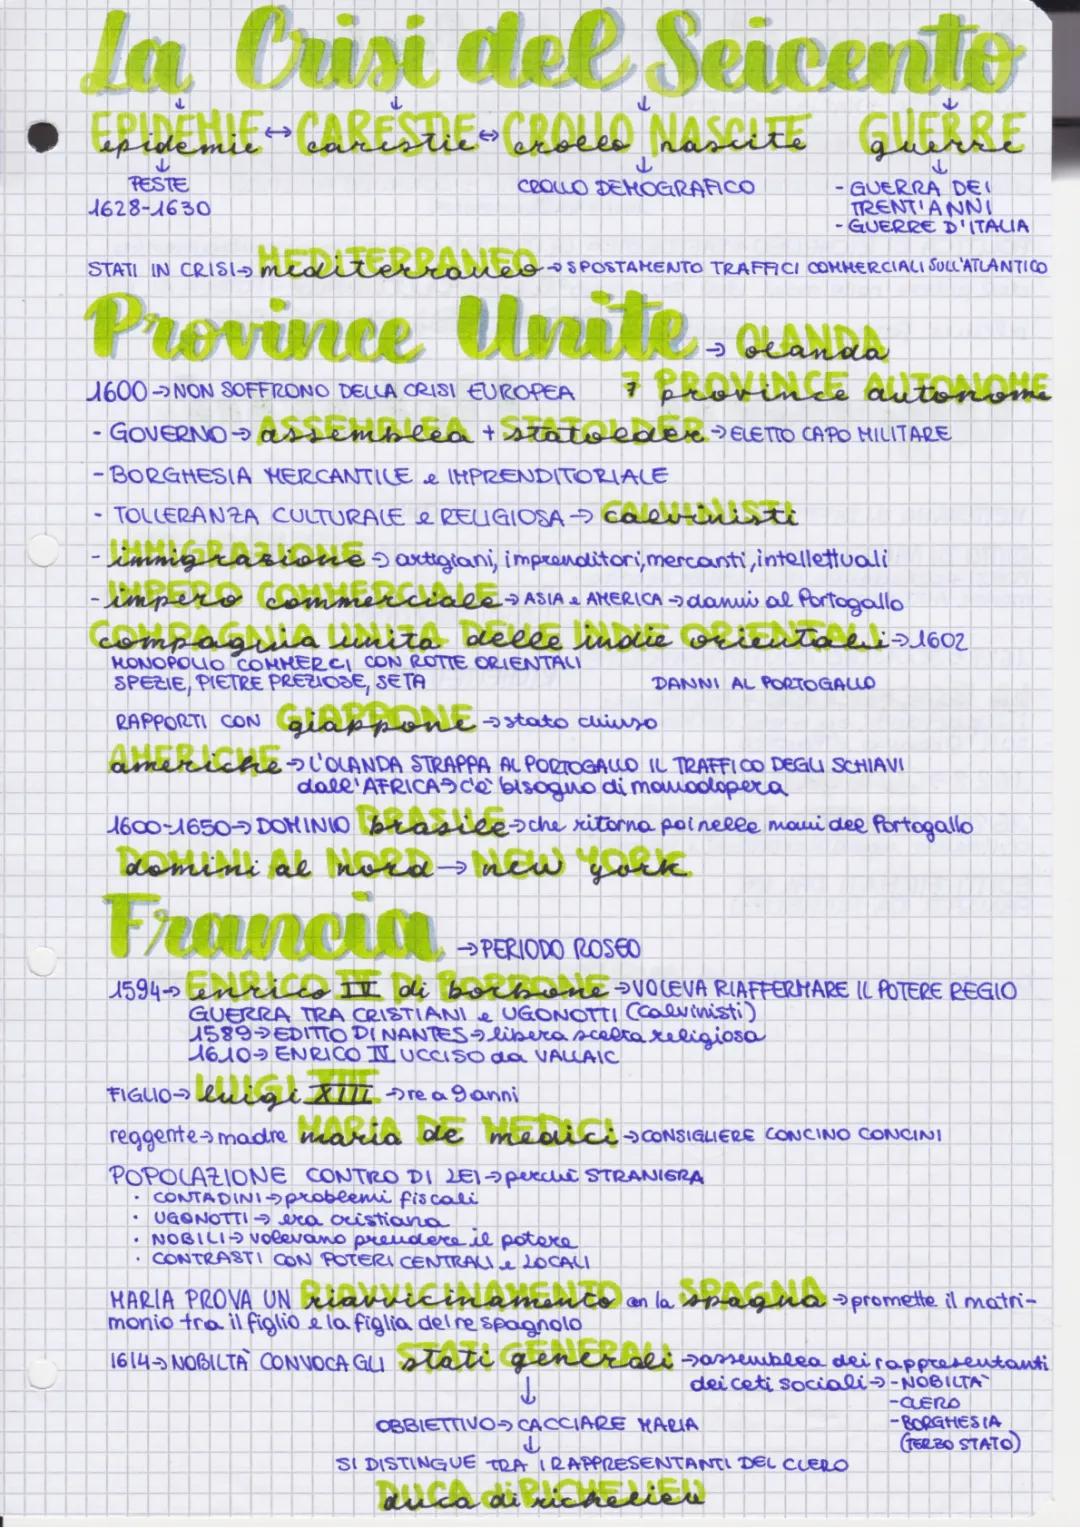 La Crisi del Seicento
EPIDEMIE epidemie ↔ CARESTIE carestie ↔ CROLLO NASCITE crollo nascite GUERRE guerre
PESTE
1628-1630
CROLLO DEMOGRAFICO
- GUERRA DEI
TRENT'ANNI
- GUERRE D'ITALIA
STATI IN CRISI → MEDITERRANEO mediterraneo → SPOSTAMENTO TRAFFICI COMMERCIALI SULL'ATLANTICO
Province Unite → OLANDA olanda
1600 → NON SOFFRONO DELLA CRISI EUROPEA 7 PROVINCE AUTONOME province autonome
- GOVERNO → assemblea + statolder → ELETTO CAPO MILITARE
- BORGHESIA MERCANTILE e IMPRENDITORIALE
- TOLLERANZA CULTURALE e RELIGIOSA → calvinisti
- immigrazione → artigiani, imprenditori, mercanti, intellettuali
- impero commerciale → ASIA e AMERICA → danni al Portogallo
compagnia unita delle indie orientali → 1602
MONOPOLIO COMMERCI CON ROTTE ORIENTALI
SPEZIE, PIETRE PREZIOSE, SETA DANNI AL PORTOGALLO
RAPPORTI CON giappone → stato chiuso
americhe → L'OLANDA STRAPPA AL PORTOGALLO IL TRAFFICO DEGLI SCHIAVI
dall'AFRICA → c'è bisogno di manodopera
1600-1650 → DOMINIO brasile → che ritorna poi nelle mani del Portogallo
domini al nord → new york
Francia → PERIODO ROSEO
1594 → enrico IV di borbone → VOLEVA RIAFFERMARE IL POTERE REGIO
GUERRA TRA CRISTIANI e UGONOTTI (calvinisti)
1589 → EDITTO DI NANTES → libera scelta religiosa
1610 → ENRICO IV UCCISO da VALLAIC
FIGLIO → luigi XIII → re a 9 anni
reggente → madre maria de medici → CONSIGLIERE CONCINO CONCINI
POPOLAZIONE CONTRO DI LEI → perché STRANIERA
· CONTADINI → problemi fiscali
· UGONOTTI → era cristiana
· NOBILI → volevano prendere il potere
· CONTRASTI CON POTERI CENTRALI e LOCALI
MARIA PROVA UN riavvicinamento con la spagna → promette il matri-
monio tra il figlio e la figlia del re spagnolo
1614 → NOBILTÀ CONVOCA GLI stati generali → assemblea dei rappresentanti
dei ceti sociali → - NOBILTÀ
- CLERO
- BORGHESIA
(TERZO STATO)
OBBIETTIVO → CACCIARE MARIA
SI DISTINGUE TRA I RAPPRESENTANTI DEL CLERO
duca di richelieu